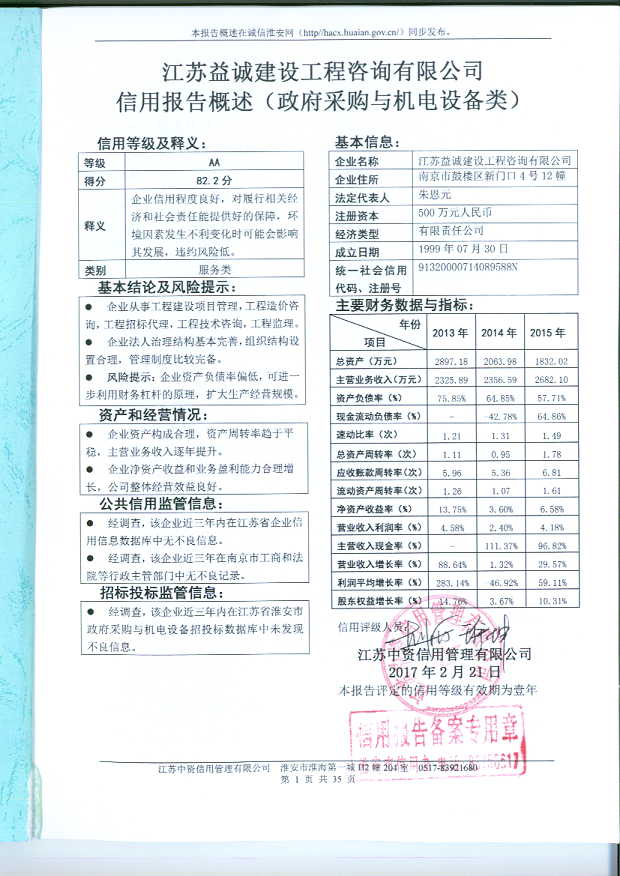 本报告概述在诚信淮安网（http//hacx.huaian.gov.cn/）同步发布。
江苏益诚建设工程咨询有限公司
信用报告概述（政府采购与机电设备类）
信用等级及释义：
等级 AA
得分 82.2分
释义 企业信用程度良好，对履行相关经
济和社会责任能提供好的保障，环
境因素发生不利变化时可能会影响
其发展，违约风险低。
类别 服务类
基本结论及风险提示：
● 企业从事工程建设项目管理，工程造价咨
询，工程招标代理，工程技术咨询，工程监理。
● 企业法人治理结构基本完善，组织结构设
置合理，管理制度比较完备。
● 风险提示：企业资产负债率偏低，可进一
步利用财务杠杆的原理，扩大生产经营规模。
资产和经营情况：
● 企业资产构成合理，资产周转率趋于平
稳，主营业务收入逐年提升。
● 企业净资产收益和业务盈利能力合理增
长，公司整体经营效益良好。
公共信用监管信息：
● 经调查，该企业近三年内在江苏省企业信
用信息数据库中无不良信息。
● 经调查，该企业近三年在南京市工商和法
院等行政主管部门中无不良记录。
招标投标监管信息：
● 经调查，该企业近三年内在江苏省淮安市
政府采购与机电设备招投标数据库中未发现
不良信息。
基本信息：
企业名称 江苏益诚建设工程咨询有限公司
企业住所 南京市鼓楼区新门口4号12幢
法定代表人 朱恩元
注册资本 500万元人民币
经济类型 有限责任公司
成立日期 1999年07月30日
统一社会信用 91320000714089588X
代码、注册号
主要财务数据与指标：
年份 项目 2013年 2014年 2015年
总资产（万元） 2897.18 2063.98 1832.02
主营业务收入(万元) 2325.89 2356.59 2682.10
资产负债率（%） 75.85% 64.85% 57.71%
现金流动负债率（%） - -42.78% 64.86%
速动比率（次） 1.21 1.31 1.49
总资产周转率（次） 1.11 0.95 1.78
应收账款周转率(次) 5.96 5.36 6.81
流动资产周转率(次) 1.26 1.07 1.61
净资产收益率（%） 13.75% 3.60% 6.58%
营业收入利润率（%） 4.58% 2.40% 4.18%
主营收入现金率（%） - 111.37% 96.82%
营业收入增长率（%） 88.64% 1.32% 29.57%
利润平均增长率（%） 283.14% -46.92% 59.11%
股东权益增长率（%） 14.76% 3.67% 10.31%
信用评级人员：
江苏中资信用管理有限公司
2017年2月21日
本报告评定的信用等级有效期为壹年
信用报告备案专用章
江苏中资信用管理有限公司 淮安市淮海第一城D2幢204室 0517-83921680
第 1 页 共 35 页